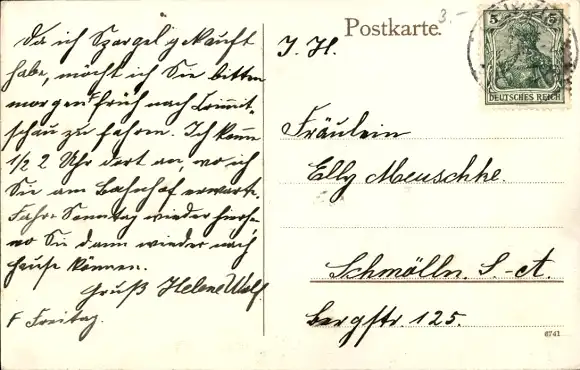 Da ich Spargel gekauft
habe, möcht ich Sie bitten
morgen früh nach Crimmit-
schau zu fahren. Ich komm
1/2 2 Uhr dort an, wo ich
Sie am Bahnhof erwarte.
Fahre Sonntag wieder
wo Sie dann wieder nach
Hause können.
Gruß Helene Wolf
Freitag.
3.-
Postkarte.
I. H.
5 5
DEUTSCHES REICH
Fräulein
Elly Meuschke.
Schmölln. S.-A.
Bergstr. 125.
6741